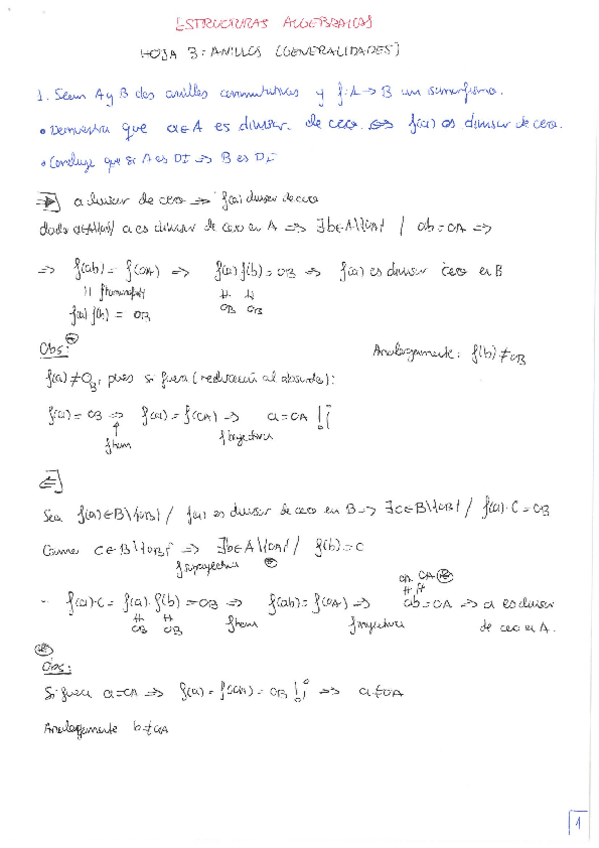 ESTRUCTURAS ALGEBRAICAS
HOJA 3: ANILLOS (GENERALIDADES)
1. Sean A y B dos anillos conmutativos y f: A → B un isomorfismo.
• Demuestra que a ∈ A es divisor de cero ⇔ f(a) es divisor de cero.
• Concluye que si A es DI ⇒ B es DI
⇒] a divisor de cero ⇒ f(a) divisor de cero
dado a∈A\{0A} a es divisor de cero en A ⇒ ∃b∈A\{0A} / ab = 0A ⇒
⇒ f(ab) = f(0A) ⇒ f(a) f(b) = 0B ⇒ f(a) es divisor cero en B
f(a) f(b) = 0B
0B 0B
Obs:
Analogamente: f(b) ≠ 0B
f(a) ≠ 0B, pues si fuera (reducción al absurdo):
f(a) = 0B ⇒ f(a) = f(0A) ⇒ a = 0A !¡
f hom
f inyectiva
⇐]
Sea f(a)∈B\{0B} / f(a) es divisor de cero en B ⇒ ∃c∈B\{0B} / f(a)·c = 0B
Como c∈B\{0B} ⇒ ∃b∈A\{0A} / f(b) = c
- f(a)·c = f(a)·f(b) = 0B ⇒ f(ab) = f(0A) ⇒ ab = 0A ⇒ a es divisor
0B 0B f hom f inyectiva de cero en A.
Obs:
Si fuera a = 0A ⇒ f(a) = f(0A) = 0B !¡ ⇒ a ≠ 0A
Analogamente b ≠ 0A
1